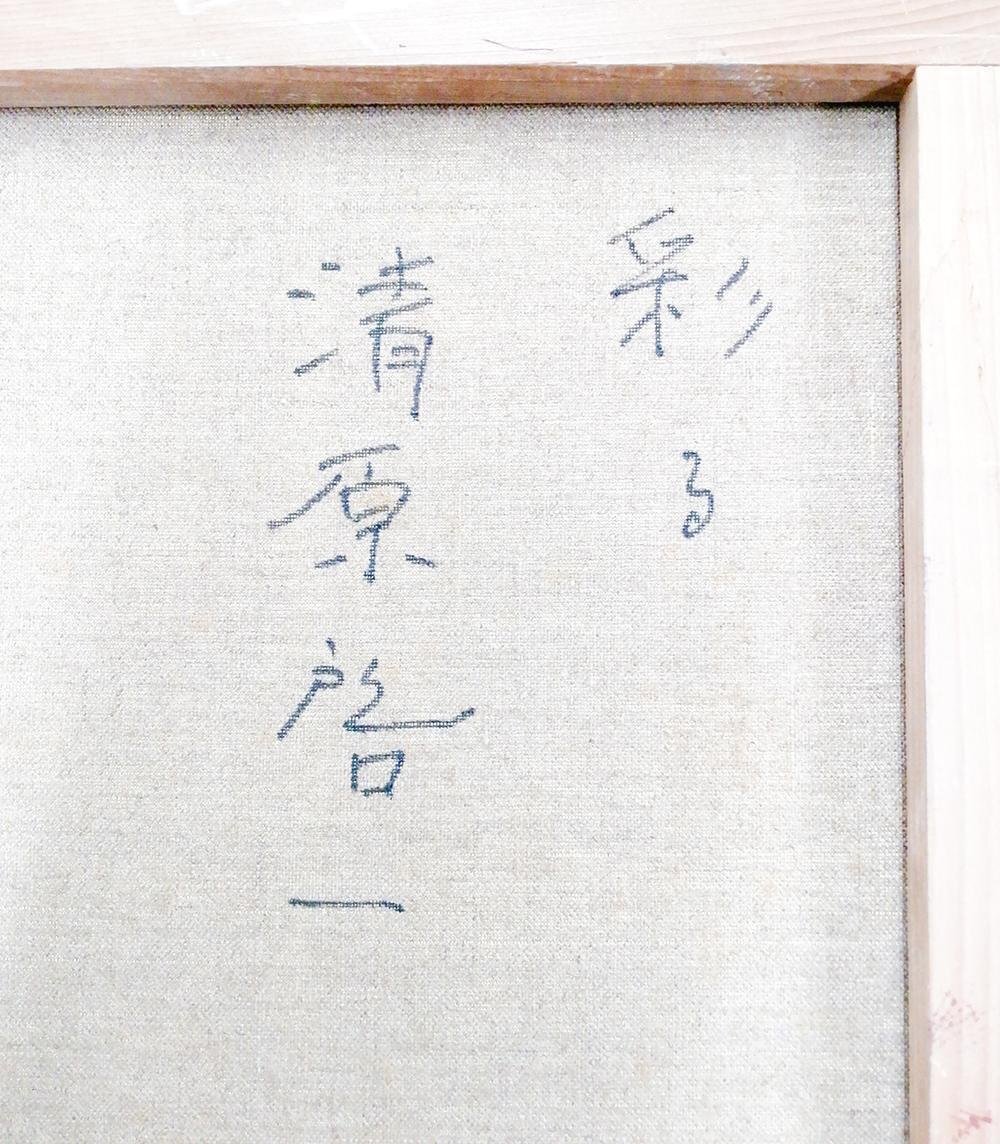 彩る
清原啓一